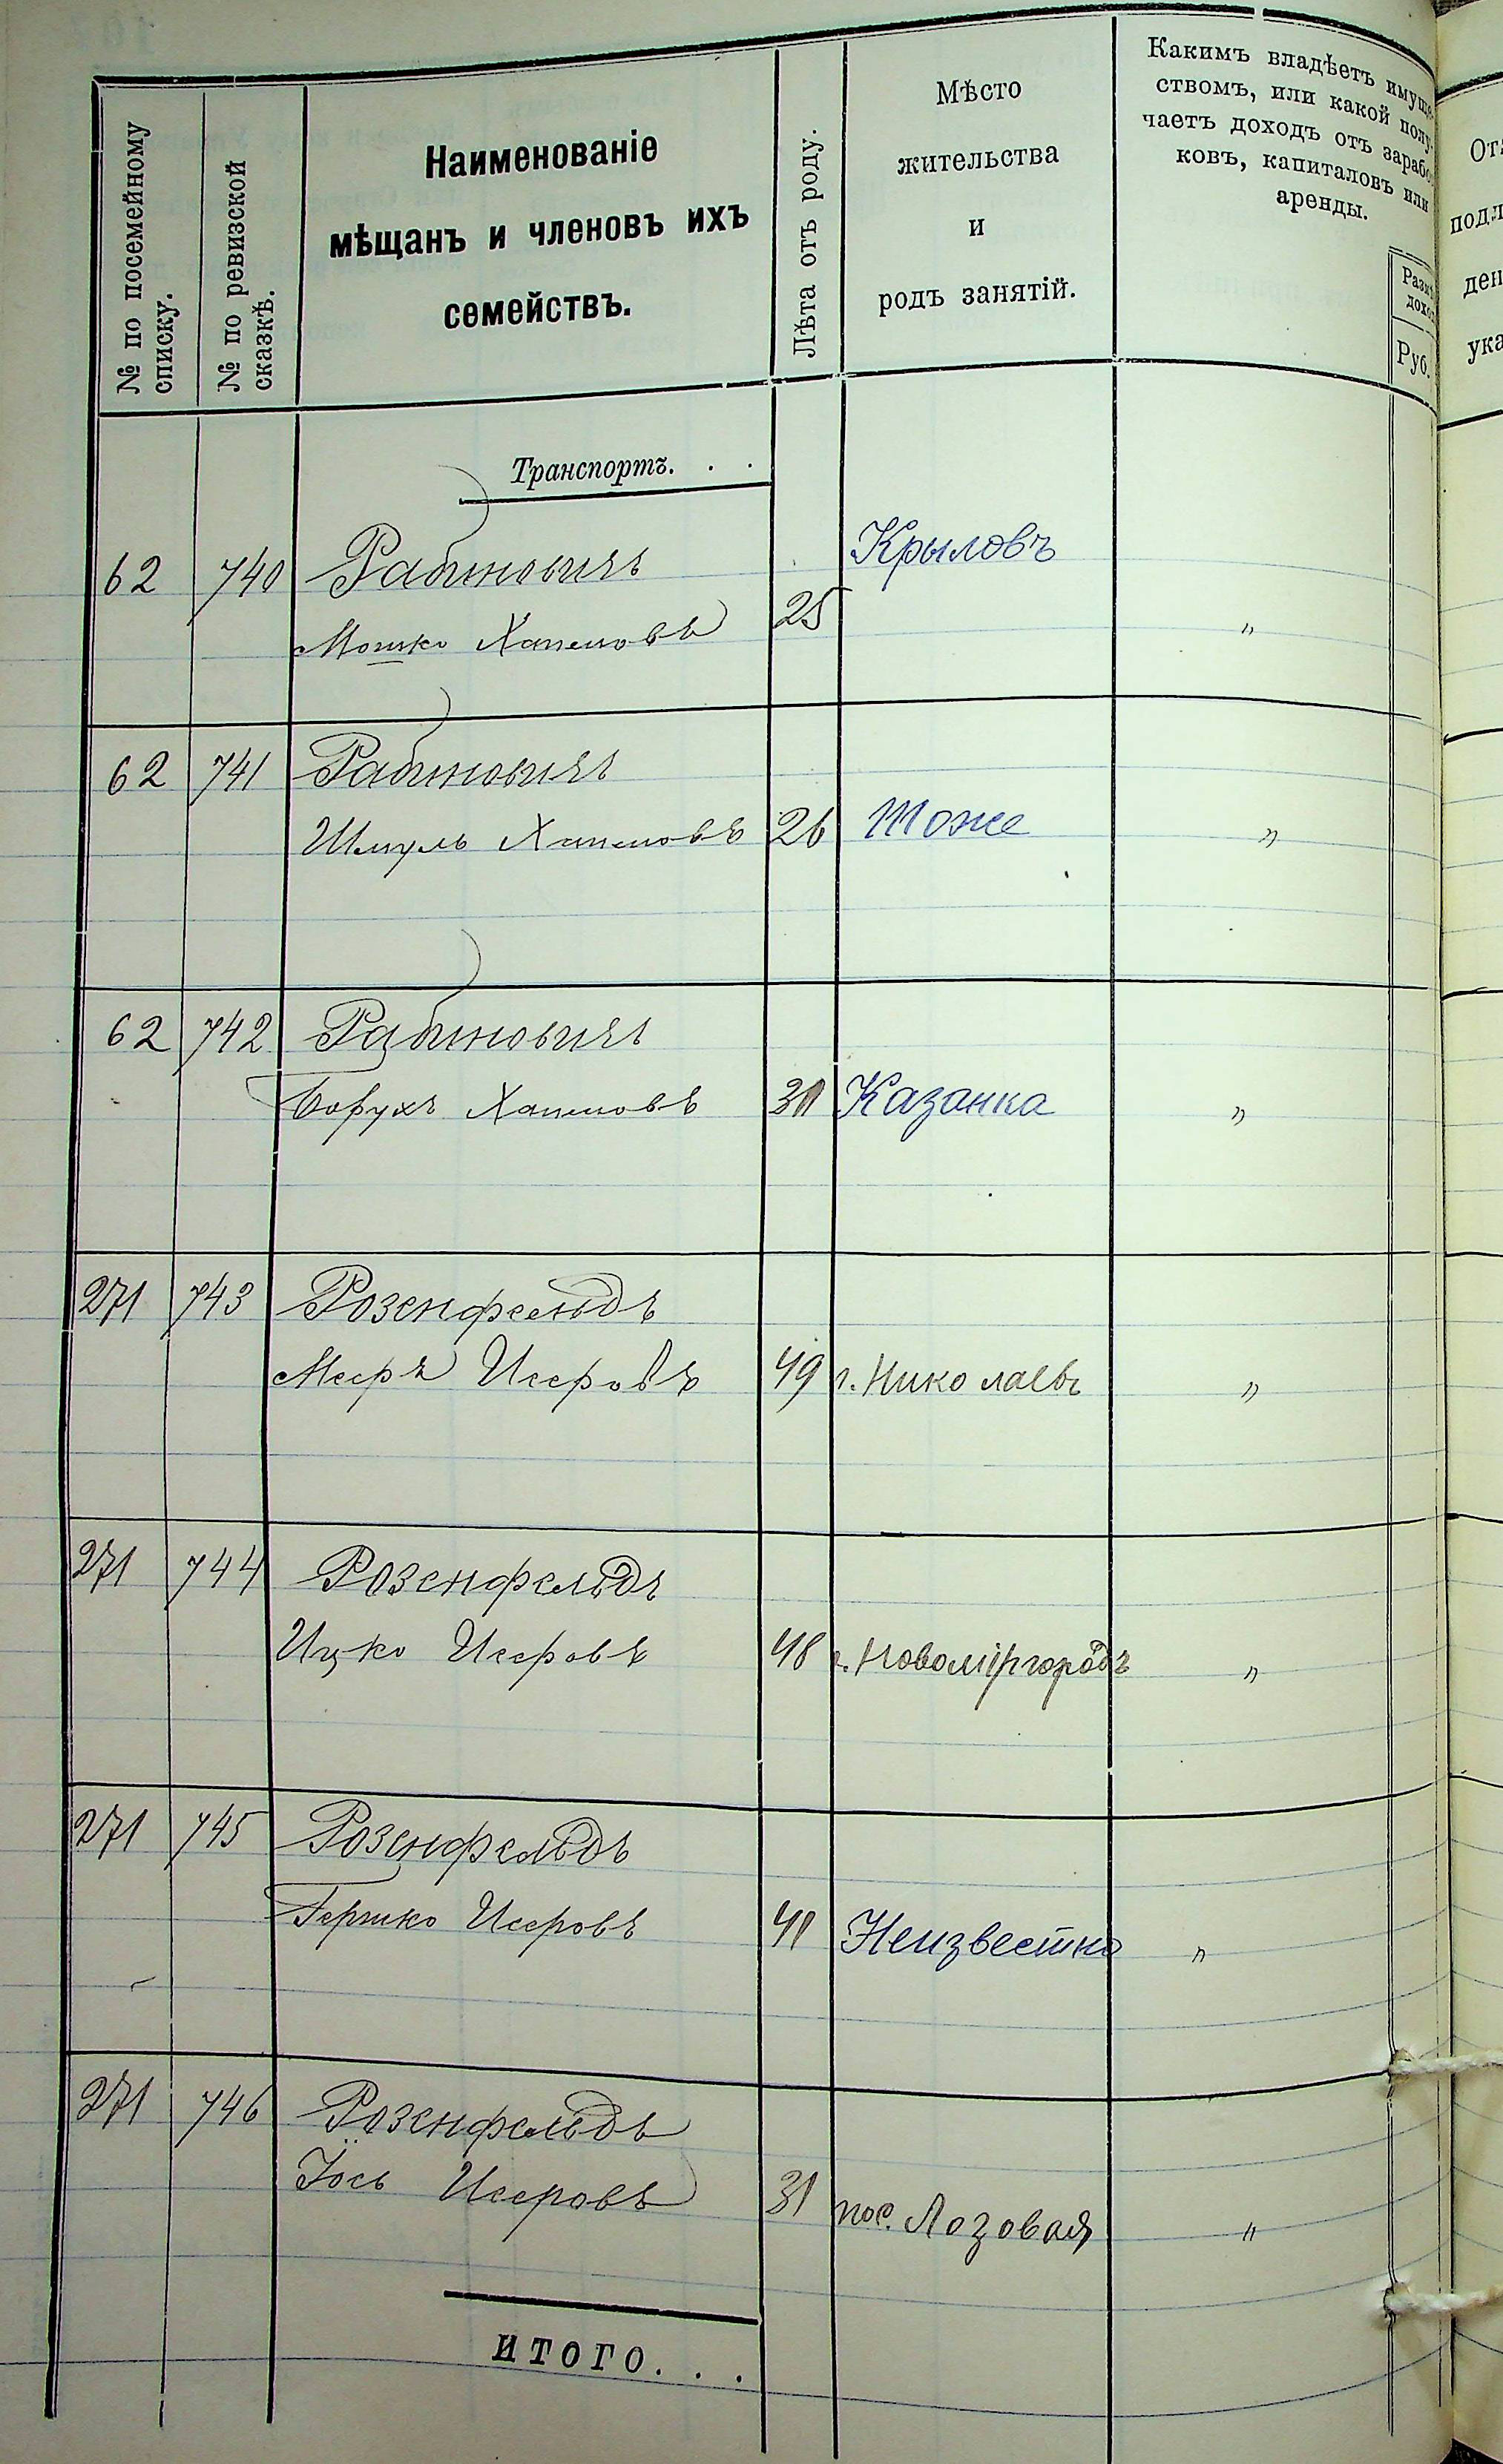 № по посемейному
списку.
№ по ревизской
сказкѣ.
Наименованіе
мѣщанъ и членовъ ихъ
семействъ.
Лѣта отъ роду.
Мѣсто
жительства
и
родъ занятій.
Какимъ владѣетъ имуще
ствомъ, или какой полу-
чаетъ доходъ отъ зарабо
ковъ, капиталовъ или
аренды.
Руб.
Транспортъ. . .
62 740 Рабиновичъ Крыловъ
Мошко Хаимовъ 25 "
62 741 Рабиновичъ
Шмуль Хаимовъ 26 Тоже "
62 742 Рабиновичъ
Борухъ Хаимовъ 31 Казанка "
271 743 Розенфельдъ
Мееръ Исеровъ 49 г. Николаевъ "
271 744 Розенфельдъ
Ицко Исеровъ 48 г. Новоміргородъ "
271 745 Розенфельдъ
Гершко Исеровъ 41 Неизвестно "
271 746 Розенфельдъ
Іось Исеровъ 31 пос. Лозовая "
ИТОГО. . .